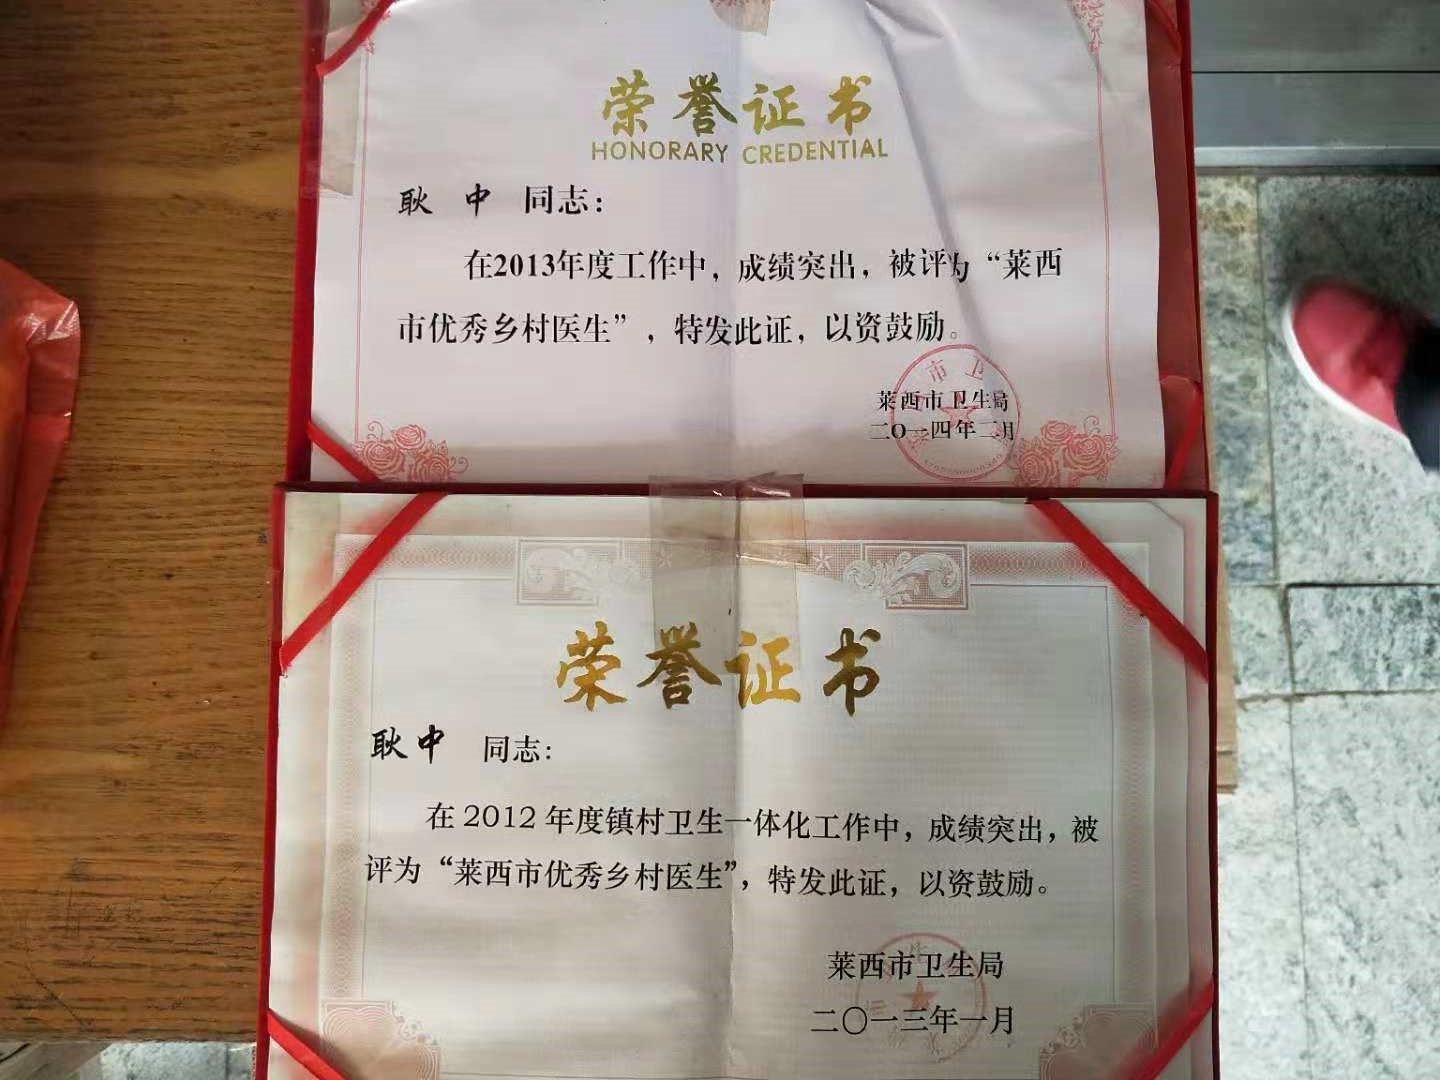 荣誉证书
HONORARY CREDENTIAL
耿 中 同志：
在2013年度工作中，成绩突出，被评为“莱西
市优秀乡村医生”，特发此证，以资鼓励。
莱西市卫生局
二〇一四年二月
荣誉证书
耿中 同志：
在 2012 年度镇村卫生一体化工作中，成绩突出，被
评为“莱西市优秀乡村医生”，特发此证，以资鼓励。
莱西市卫生局
二〇一三年一月